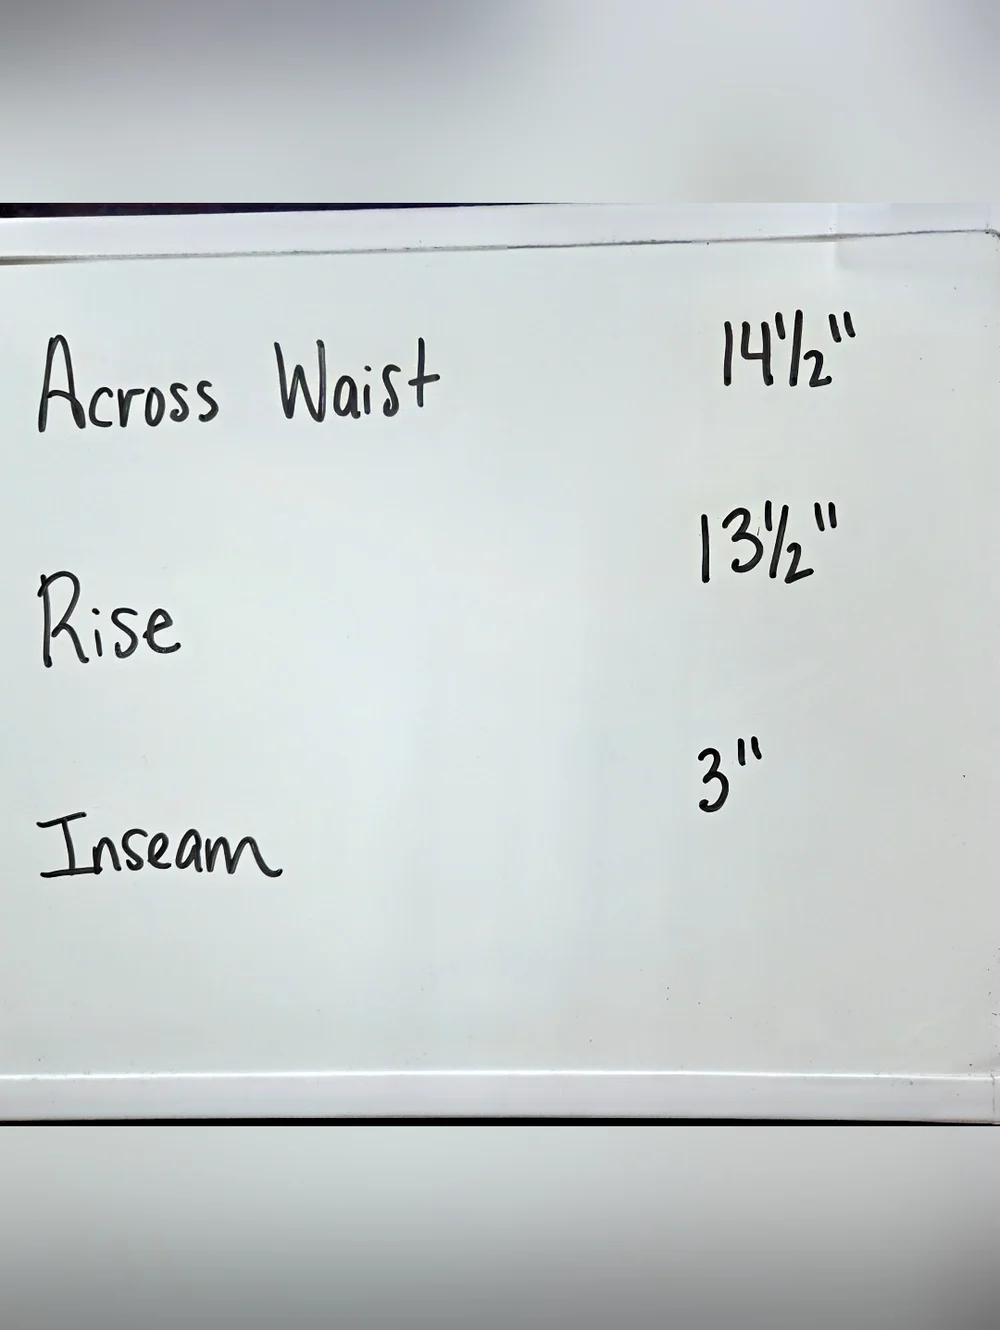 Across Waist 14½"
Rise 13½"
Inseam 3"